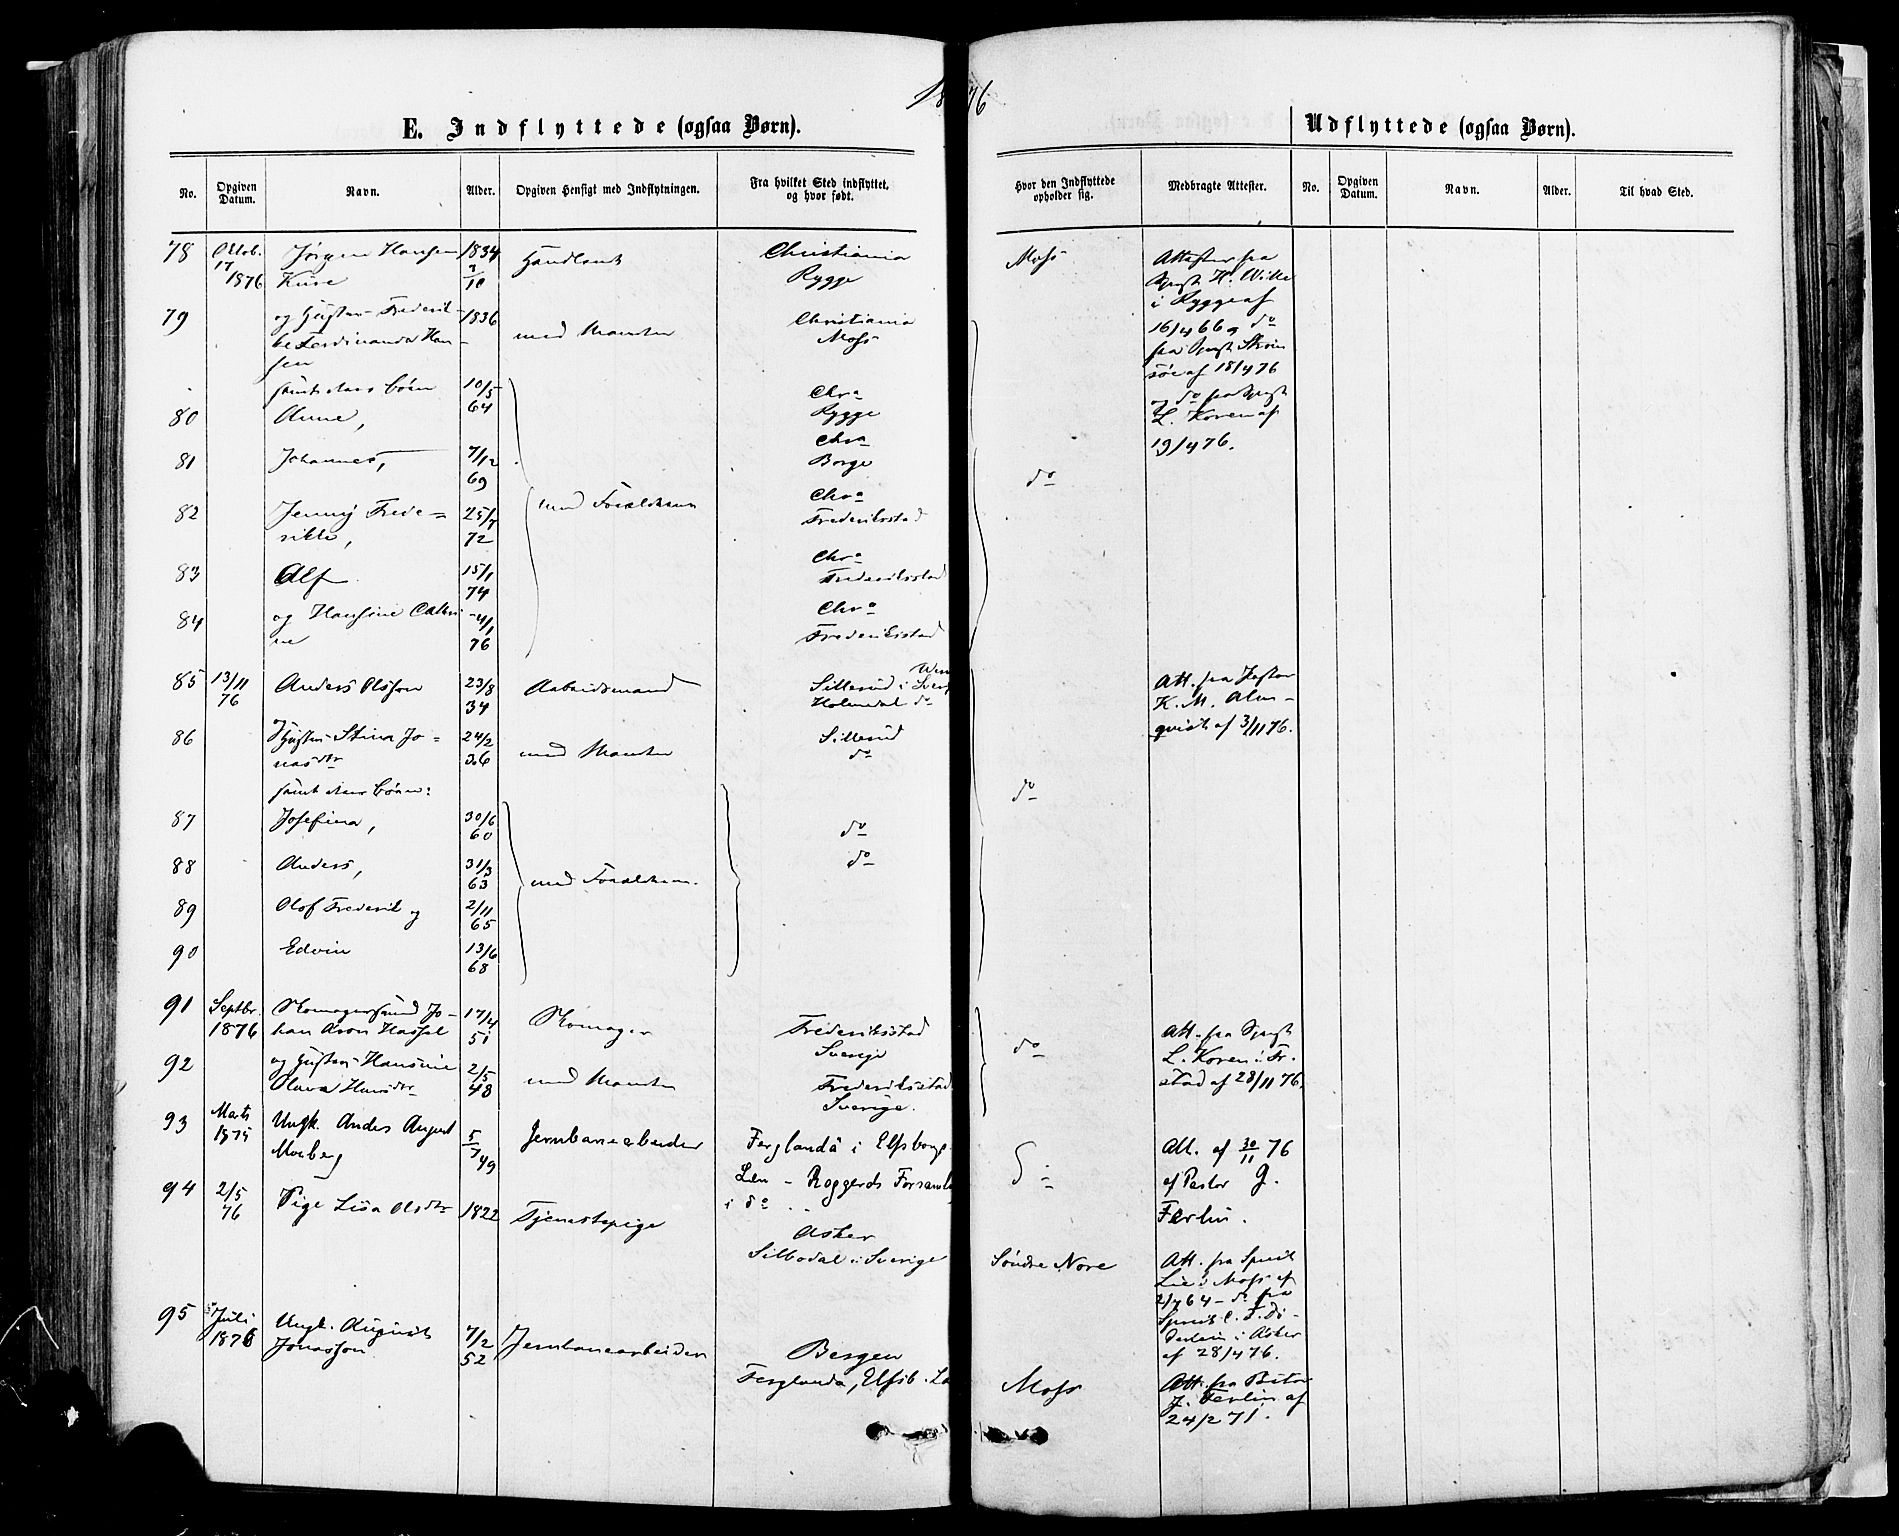 1876
E. Indflyttede (ogsaa Børn).
Udflyttede (ogsaa Børn).
No. Opgiven Datum. Navn. Alder. Opgiven Hensigt med Indflytningen. Fra hvilket Sted indflyttet, og hvor født. Hvor den Indflyttede opholder sig. Medbragte Attester. No. Opgiven Datum. Navn. Alder. Til hvad Sted.
78 Oktob. 17 1876 Jørgen Hansen 1834 Christiania Moss Attester fra
Rygge Spgt H. Wille
i Rygge af
79 og Hustru Frederik- 1836 med Manden Christiania 16/4 66 og do
ke Ferdinanda Han- Moss fra Spgt
sen af 18/4 76
samt deres Børn 10/5 Chra og do fra Spgt
80 Anne, 64 Rygge L. Koren af
Chra 19/4 76.
81 Johannes, 7/12 Borge
69 do
82 Jenny Frede= 25/7 med Forældrene Chra
rikke, 72 Frederiksstad
83 Alf 15/1 Chra
74 Frederiksstad
84 og Hansine Cathri 4/1 Chra
ne 76 Frederiksstad
85 13/11 Anders Olsson 23/8 Arbeidsmand Sillerud i Att. fra Pastor
76 34 Holmedal do K. M. Alm-
qvist af 3/11 76.
86 Hustru Stina Jo= 24/2 med Manden Sillerud
nasdtr 36 do
samt deres Børn: do
87 Josefina, 30/6 do
60
88 Anders, 31/3 do
63 med Forældrene.
89 Olof Frederik og 2/11
65
90 Edvin 13/6
68
91 Septbr. Skomagersvend Jo- 17/4 Skomager Frederiksstad Att. fra Spgt
1876 han Aron Hassel 51 Sverige do L. Koren i Fr.
92 og Hustru Hansine 2/5 med Manden Frederiksstad stad af 28/11 76.
Olava Hansdtr 48 Sverige.
93 Marts Ungk. Andes August 5/7 49 Jernbanearbeider Ferglanda i Elfsborgs Att. af 30/11 76
1875 Moberg Len - Roggerds Forsaml af Pastor J.
94 2/5 Pige Lisa Olsdtr 1822 Tjenestepige i do Ferlin.
76 Asker
Silbodal i Sverige Søndre Nore Att. fra Sprst
Lie i Moss af
2/4 64 - do fra
95 5 Juli Ungk. August 7/2 Jernbanearbeider Sprst C. F.
1876 Jonasson. 52 Bergen i Asker
af 28/4 76.
Ferglanda, Elfsb. Moss Att. fra
J. Ferlin af
24/2 71.